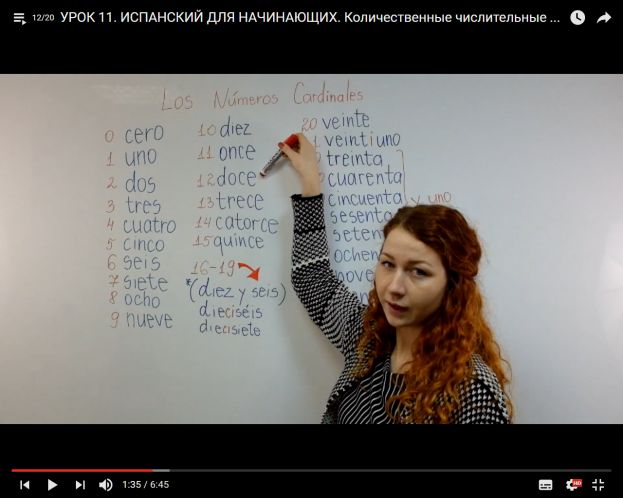 12/20 УРОК 11. ИСПАНСКИЙ ДЛЯ НАЧИНАЮЩИХ. Количественные числительные ...
Los Números Cardinales
0 cero
1 uno
2 dos
3 tres
4 cuatro
5 cinco
6 seis
7 siete
8 ocho
9 nueve
10 diez
11 once
12 doce
13 trece
14 catorce
15 quince
16-19
*(diez y seis)
dieciséis
diecisiete
20 veinte
veintiuno
treinta
cuarenta
cincuenta
y uno
1:35 / 6:45
HD